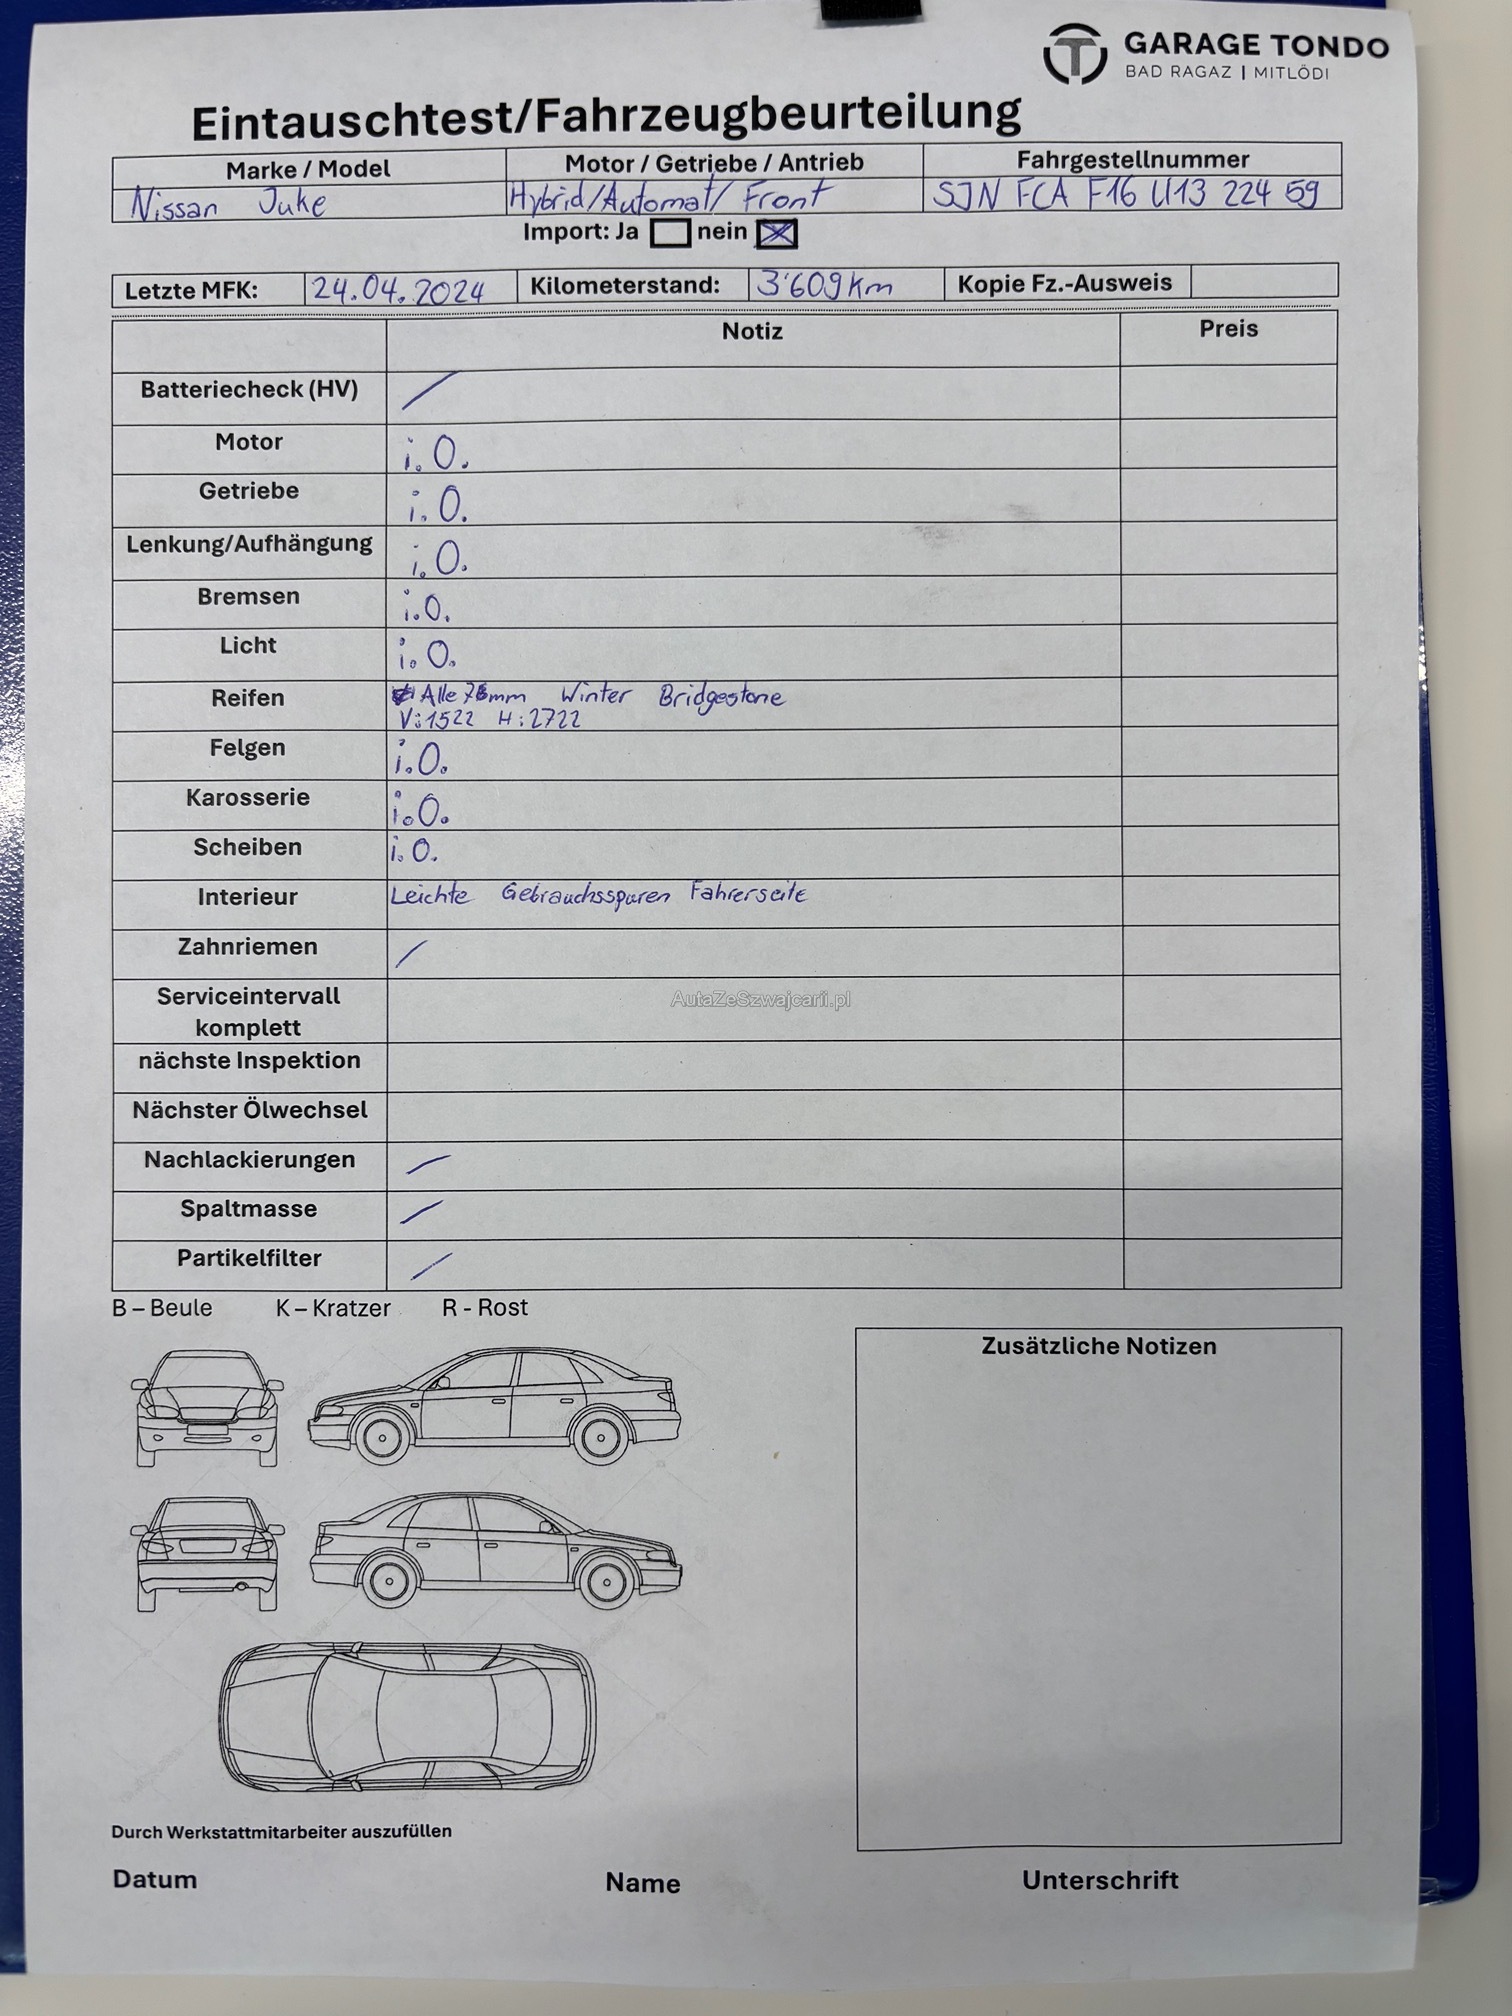 GARAGE TONDO
BAD RAGAZ | MITLÖDI
Eintauschtest/Fahrzeugbeurteilung
Marke / Model Motor / Getriebe / Antrieb Fahrgestellnummer
Nissan Juke Hybrid/Automat/Front SJN FCA F16 U13 224 59
Import: Ja nein
Letzte MFK: 24.04.2024 Kilometerstand: 3'609km Kopie Fz.-Ausweis
Notiz Preis
Batteriecheck (HV) /
Motor i.O.
Getriebe i.O.
Lenkung/Aufhängung i.O.
Bremsen i.O.
Licht i.O.
Reifen Alle mm Winter Bridgestone
V:1522 H:2722
Felgen i.O.
Karosserie i.O.
Scheiben i.O.
Interieur Leichte Gebrauchsspuren Fahrerseite
Zahnriemen /
Serviceintervall
komplett
AutaZeSzwajcarii.pl
nächste Inspektion
Nächster Ölwechsel
Nachlackierungen /
Spaltmasse /
Partikelfilter /
B – Beule K – Kratzer R - Rost
Zusätzliche Notizen
Durch Werkstattmitarbeiter auszufüllen
Datum Name Unterschrift